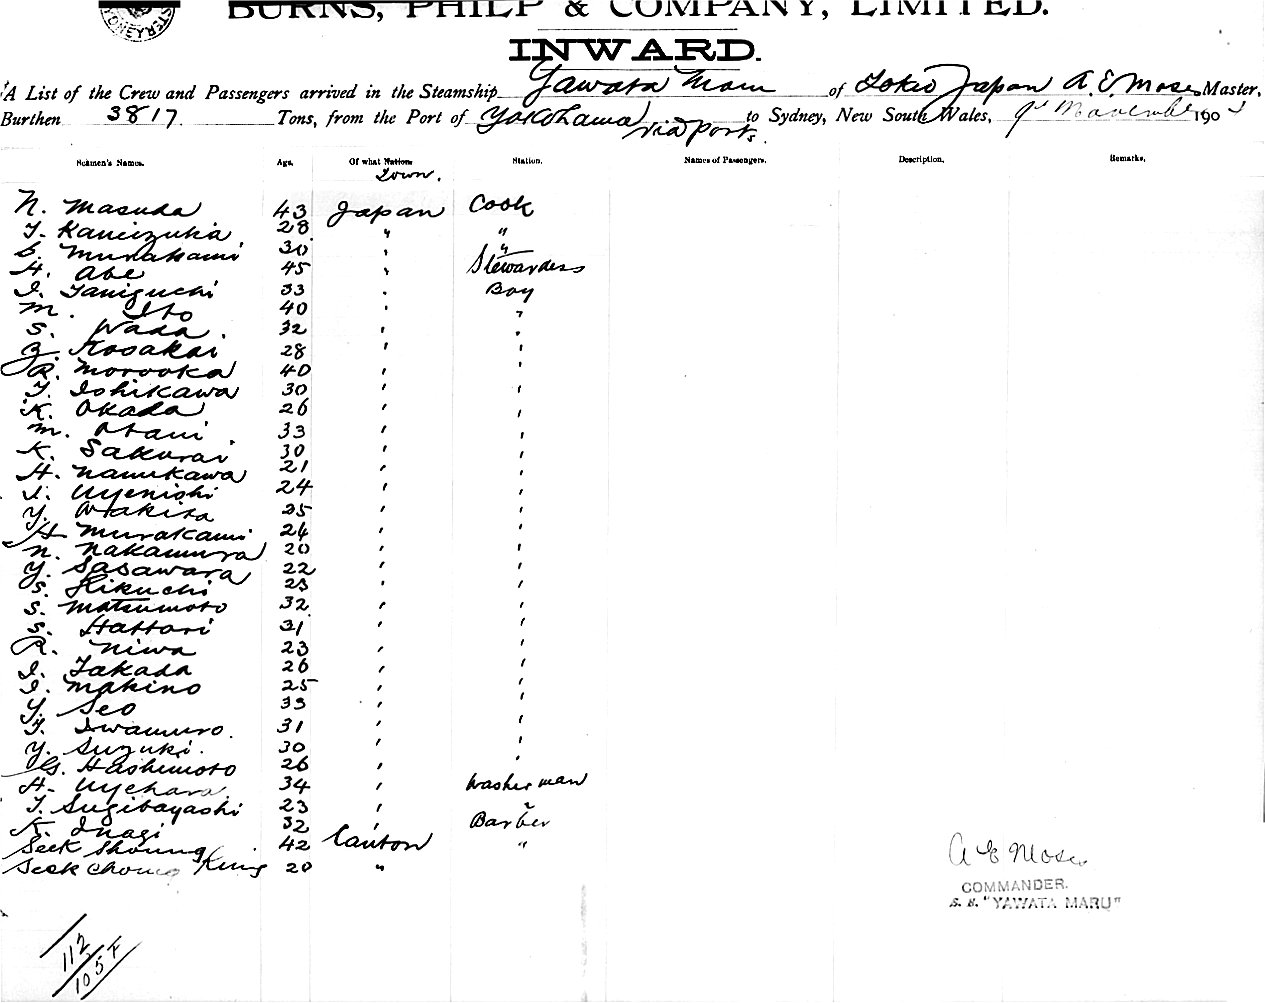 BURNS, PHILP & COMPANY, LIMITED.
INWARD.
A List of the Crew and Passengers arrived in the Steamship Yawata Maru of Tokio Japan A. E. Moses Master,
Burthen 3817 Tons, from the Port of Yokohama via ports. to Sydney, New South Wales, 9th November 190
Seamen's Names. Age. Of what Nation Town. Station. Names of Passengers. Description. Remarks.
N. Masuda 43 Japan Cook
T. Kameizuka 28 " "
S. Murakami 30 " "
H. Abe 45 " Stewardess
I. Taniguchi 33 " Boy
M. Ito 40 " "
S. Wada. 32 " "
Z. Kosakai 28 " "
R. Morooka 40 " "
T. Ishikawa 30 " "
K. Okada 26 " "
M. Otani 33 " "
K. Sakurai 30 " "
H. Namikawa 21 " "
I. Uyenishi 24 " "
Y. Wakita 25 " "
H. Murakami 24 " "
N. Nakamura 20 " "
Y. Sasawara 22 " "
S. Kikuchi 23 " "
S. Matsumoto 32 " "
S. Hattori 31 " "
R. Niwa 23 " "
I. Takada 26 " "
I. Makino 25 " "
Y. Seo 33 " "
T. Iwamuro. 31 " "
Y. Suzuki. 30 " "
G. Hashimoto 26 " "
H. Uyehara. 34 " Washerman
T. Sugibayashi 23 " "
K. Inagi 32 " Barber
Seek Shoung 42 Canton "
Seek Chong King 20 "
A E Moses
COMMANDER.
S. S. "YAWATA MARU"
112
105 F